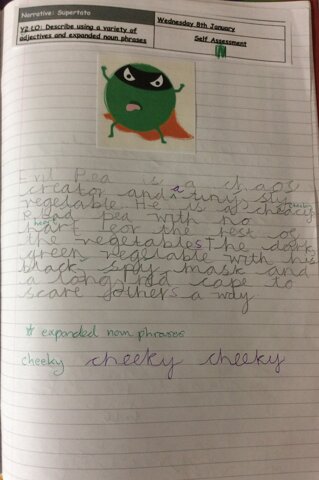 Narrative: Supertato
Wednesday 8th January
Y2 LO: Describe using a variety of
adjectives and expanded noun phrases
Self Assessment
Evil Pea is a chaos
creator and a tiny sly
vegetable. He is a cheacy
bad pea with no
heart
hart for the rest of
the vegetables The dark
green vegetable with his
black spay mask and
a long rad cape to
scare others a way
* expanded noun phrases
cheeky cheeky cheeky